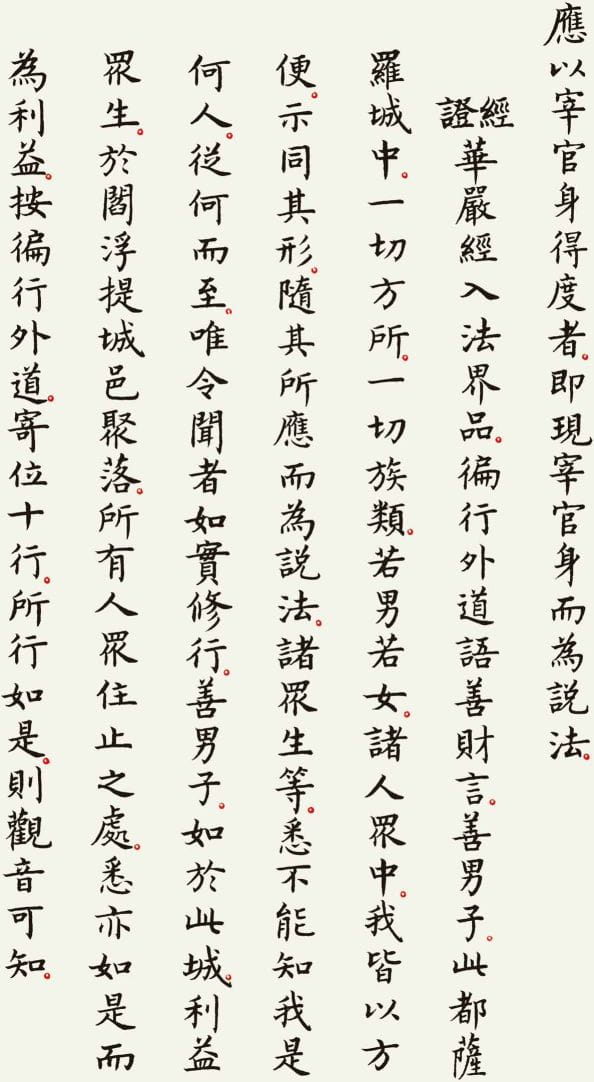 應以宰官身得度者。即現宰官身而為説法。
經證 華嚴經入法界品。徧行外道語善財言。善男子。此都薩
羅城中。一切方所。一切族類。若男若女。諸人眾中。我皆以方
便。示同其形。隨其所應而為説法。諸眾生等。悉不能知我是
何人。從何而至。唯令聞者如實修行。善男子。如於此城。利益
眾生。於閻浮提城邑聚落。所有人眾住止之處。悉亦如是而
為利益。按徧行外道。寄位十行。所行如是。則觀音可知。